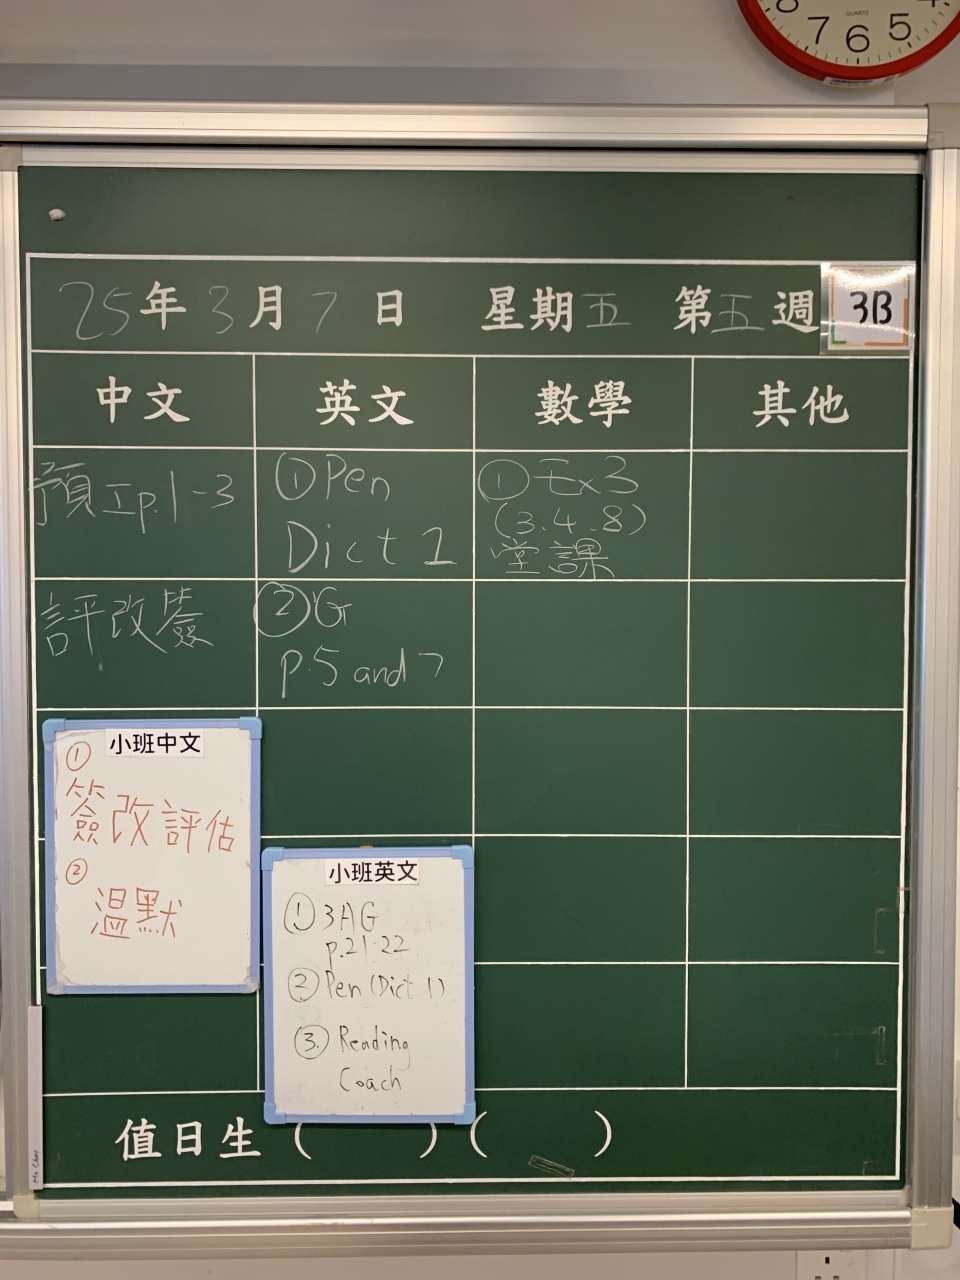 7 6 5
QUARTZ
25年3月7日 星期五 第五週 3B
中文 英文 數學 其他
預工p.1-3
① Pen
Dict 1
① Ex3
(3.4.8)
堂課
評改簽
② G
p.5 and 7
小班中文
①
簽改評估
②
溫默
小班英文
① 3AG
p.21-22
② Pen (Dict 1)
③. Reading
Coach
值日生 ( ) ( )